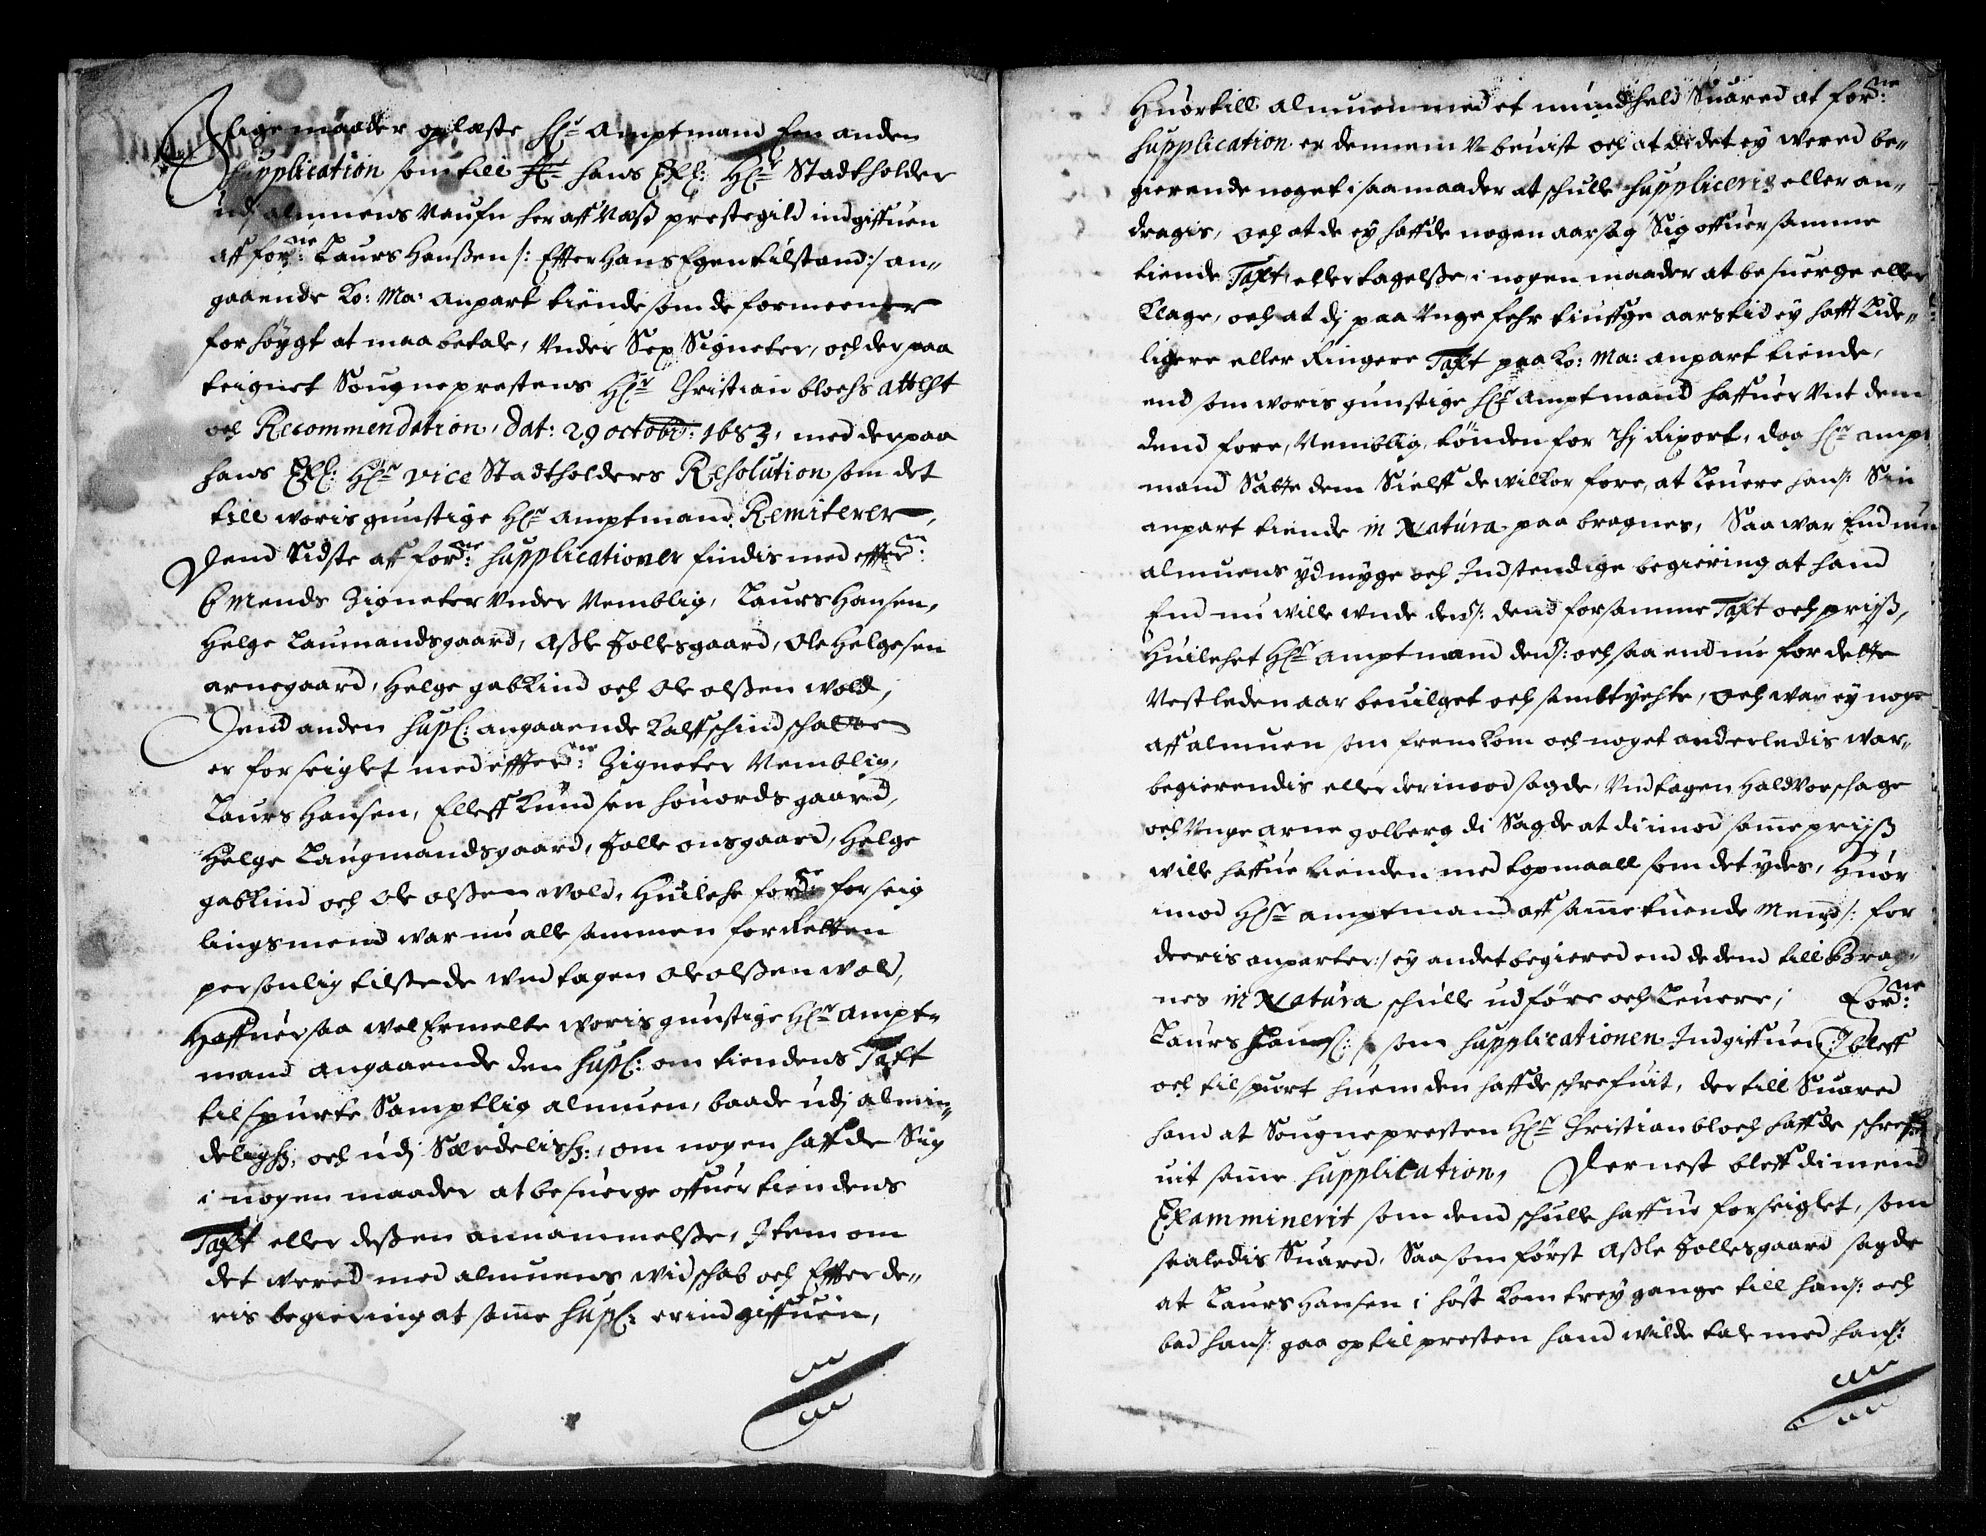 Lige maader oplæste Hr Amptmand Een anden
Supplication som till hans Exl: Hr Stadtholder
udj almuens Naufn her aff Næss prestegild indgiffuen
aff forne: Laurs Hanßen /: Effter Hans Egen tilstand :/ an-
gaaende Ko: Ma: anpart tiende som de formeener
for höygt at maa betale, Under Sex Signeter, och der paa
teignet Sougneprestens Hr Christian blochs attest
och Recommendation, Dat: 29 octobr: 1683, med der paa
hans Exl: Hr vice Stadtholders Resolution som det
till woris gunstige Hr Amptmand Remiterer,
Dend Sidste aff forne: Supplicationer findis med effterne:
6 Mends Zigneter Under Nemblig, Laurs Hansen,
Helge Laumandsgaard, Aßle Jollesgaard, Ole Helgesen
arnegaard, Helge gabKind och Ole olßen wold,
Dend anden Supl: angaaende Kalffschind schatten
er forseiglet med effterne: Zigneter Nemblig,
Laurs Hansen, Elleff Knudsen houordsgaard,
Helge Laugmandsgaard, Jolle onsgaard, Helge
gabKind och Ole olßen wold, Huilche forne: forseig
lingsmend war nu alle sammen for Retten
personlig tilstede Undtagen Ole olßen wold,
Haffuer saa wel Ermelte woris gunstige Hr Ampt-
mand angaaende den Supl: om tiendens Taxt
tilspurte Samptlig almuen, baade udj almin-
deligh:, och udj Særdelish:, om nogen haffde Sig
i nogen maader at besuerge offuer tiendens
Taxt eller deßen annammelße, Item om
det wered med almuens widschab och Effter de-
ris begiering at samme Supl: er indgiffuen,
Huortill almuen med et mundheld Suared at forne:
Supplication er dennem Ubeuist och at de det ey wered be-
gierende noget i saa maader at schulle Suppliceris eller an-
dragis, och at de ey haffde nogen aarsag Sig offuer samme
tiende Taxt eller tagelße i nogen maader at besuerge eller
Klage, och at dj paa Ungefehr tiuffge aars tid ey hafft Lide-
ligere eller Ringere Taxt paa Ko: Ma: anpart tiende,
end som woris gunstige Hr Amptmand haffuer Unt dem
dend fore, Nemblig, tönden for 2hj Rixort, dog Hr Ampt
mand Satte dem Sielff de wilkor fore, at Leuere hans: Sin
anpart tiende in Natura paa bragnes, Saa war End nu
almuens ydmyge och Indstendige begiering at hand
End nu wille Unde dens: dend for samme Taxt och prijß,
Huilchet Hr Amptmand dens: och saa end nu for dette
Nestleden aar beuilget och sambtychte, och war ey noge
aff almuen som fremkom och noget anderledis war-
begierendis eller der imod sagde, Undtagen Haldvor schage
och Unge arne golberg di Sagde at di imod samme prijß
wille haffue tienden med topmaall som det ydes, Huor
imod Hr Amptmand aff samme tuende Mend /: for
deeris anparter:/ ey andet begiered end de dend till Brag-
nes in Natura schulle udföre och Leuere, Forne:
Laurs Hans: /: som Supplicationen Indgiffuen :/ bleff
och tilspurt huem den haffde schrefuit, der till Suared
hand at Sougnepresten Hr Christian bloch haffde schref-
uit samme Supplication, Dernest bleff di mend
Examminerit som dend schulle haffue forseiglet, som
saaledis Suared, Saa som först Aßle Jollesgaard sagde
at Laurs Hansen i höst kom trey gange till hans: och
bad hans: gaa op til presten hand wilde tale med hans: